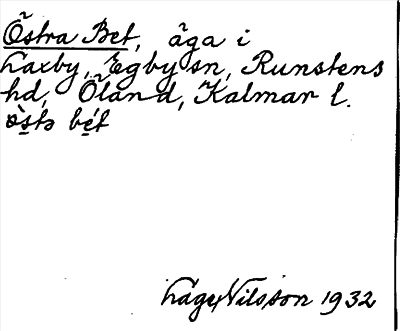 Östra Bet, äga i
Laxby, Egby sn, Runstens
hd, Öland, Kalmar l.
bét
Låge Nilsson 1932